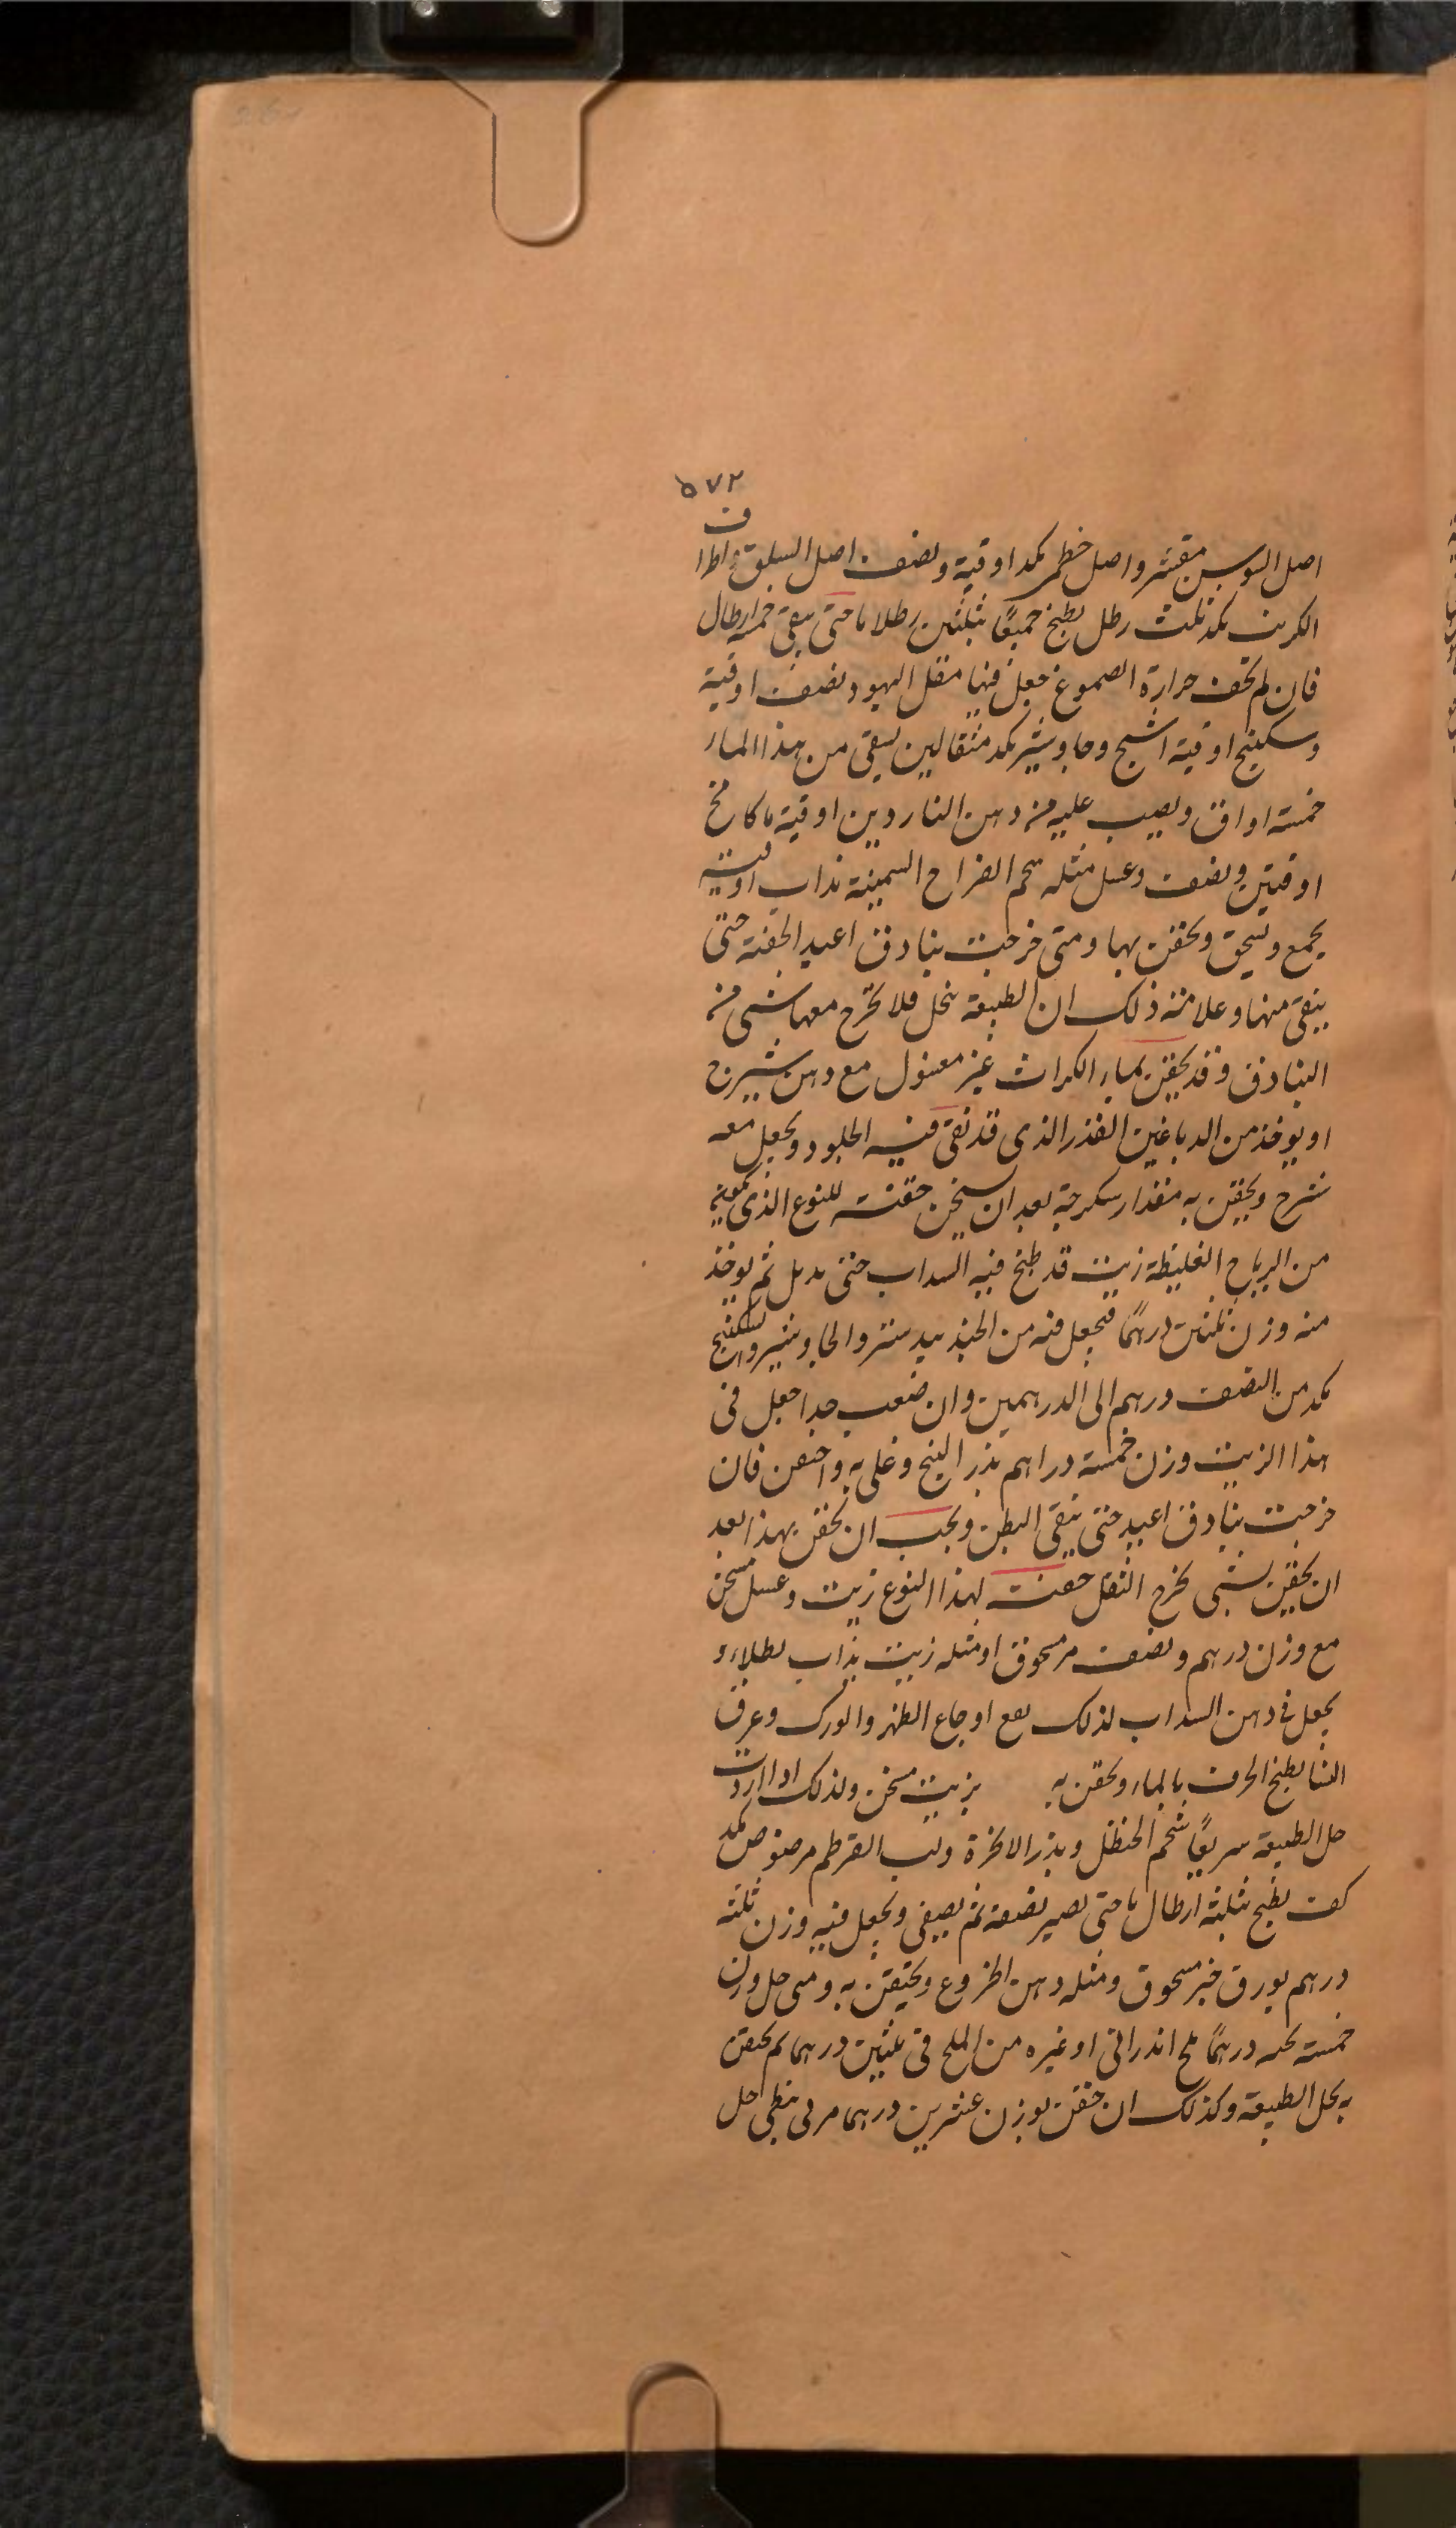 ٥٧٢
اصل السوس مقشر واصل خطمى كمد اوقية ونصف اصل السلق واطراف
الكرنب كمد ثلث رطل يطبخ جميعًا بثلثين رطلا ما حتى يبقى خمسة ارطال
فان لم تخف حرارة الصموغ جعل فيها مقل اليهود نصف اوقية
وسكبينج اوقية اشج وجاوشير كمد مثقالين يبقى من هذا الماء
خمسة اواق ويصب عليه من دهن الناردين اوقية ما كامخ
اوقيتين ونصف وعسل مثله شحم الفراخ السمينة مذاب اوقية
يجمع ويسحق ويحقن بها ومتى خرجت بنادق اعيد الحقنة حتى
ينقى منها وعلامته ذلك ان الطبيعة تنحل فلا تخرج معها شى من
البنادق وقد يحقن بماء الكراث غير مغسول مع دهن شيرج
او يوخذ من الدباغين القذر الذى قد نقى فيه الجلود ويجعل معه
شيرج ويحقن به مقدار سكرجة بعد ان يسخن حقنة للنوع الذى
من الرياح الغليظة زيت قد طبخ فيه السداب حتى ثم يوخذ
منه وزن ثلثين درهمًا فيجعل فيه من الجندبيدستر والجاوشير والسكبينج
كمد من النصف درهم الى الدرهمين وان صعب جدا جعل فى
هذا الزيت وزن خمسة دراهم بذر البنج وغلى به واحقن فان
خرجت بنادق اعيد حتى ينقى البطن ويجب ان يحقن بهذا بعد
ان يحقن بشى يخرج الثفل حقنة لهذا النوع زيت وعسل مسخن
مع وزن درهم ونصف مر مسحوق او مثله زيت يذاب بطلاء و
يجعل فى دهن السداب لذلك اوجاع الظهر والورك وعرق
النسا يطبخ الحرف بالماء ويحقن به بزيت مسخن ولذلك اذا اردت
حل الطبيعة سريعًا شحم الحنظل وبذر الانجرة ولب القرطم مرضوض كمد
كف يطبخ بثلثة ارطال ما حتى يصير نصفه ثم يصفى ويجعل فيه وزن ثلثة
درهم بورق خبز مسحوق ومثله دهن الخروع ويحتقن به ومتى حل وزن
خمسة درهمًا ملح اندرانى او غيره من الملح فى ثلثين درهما ثم يحقن
به يحل الطبيعة وكذلك ان حقن بوزن عشرين درهما مرى نبطى حل